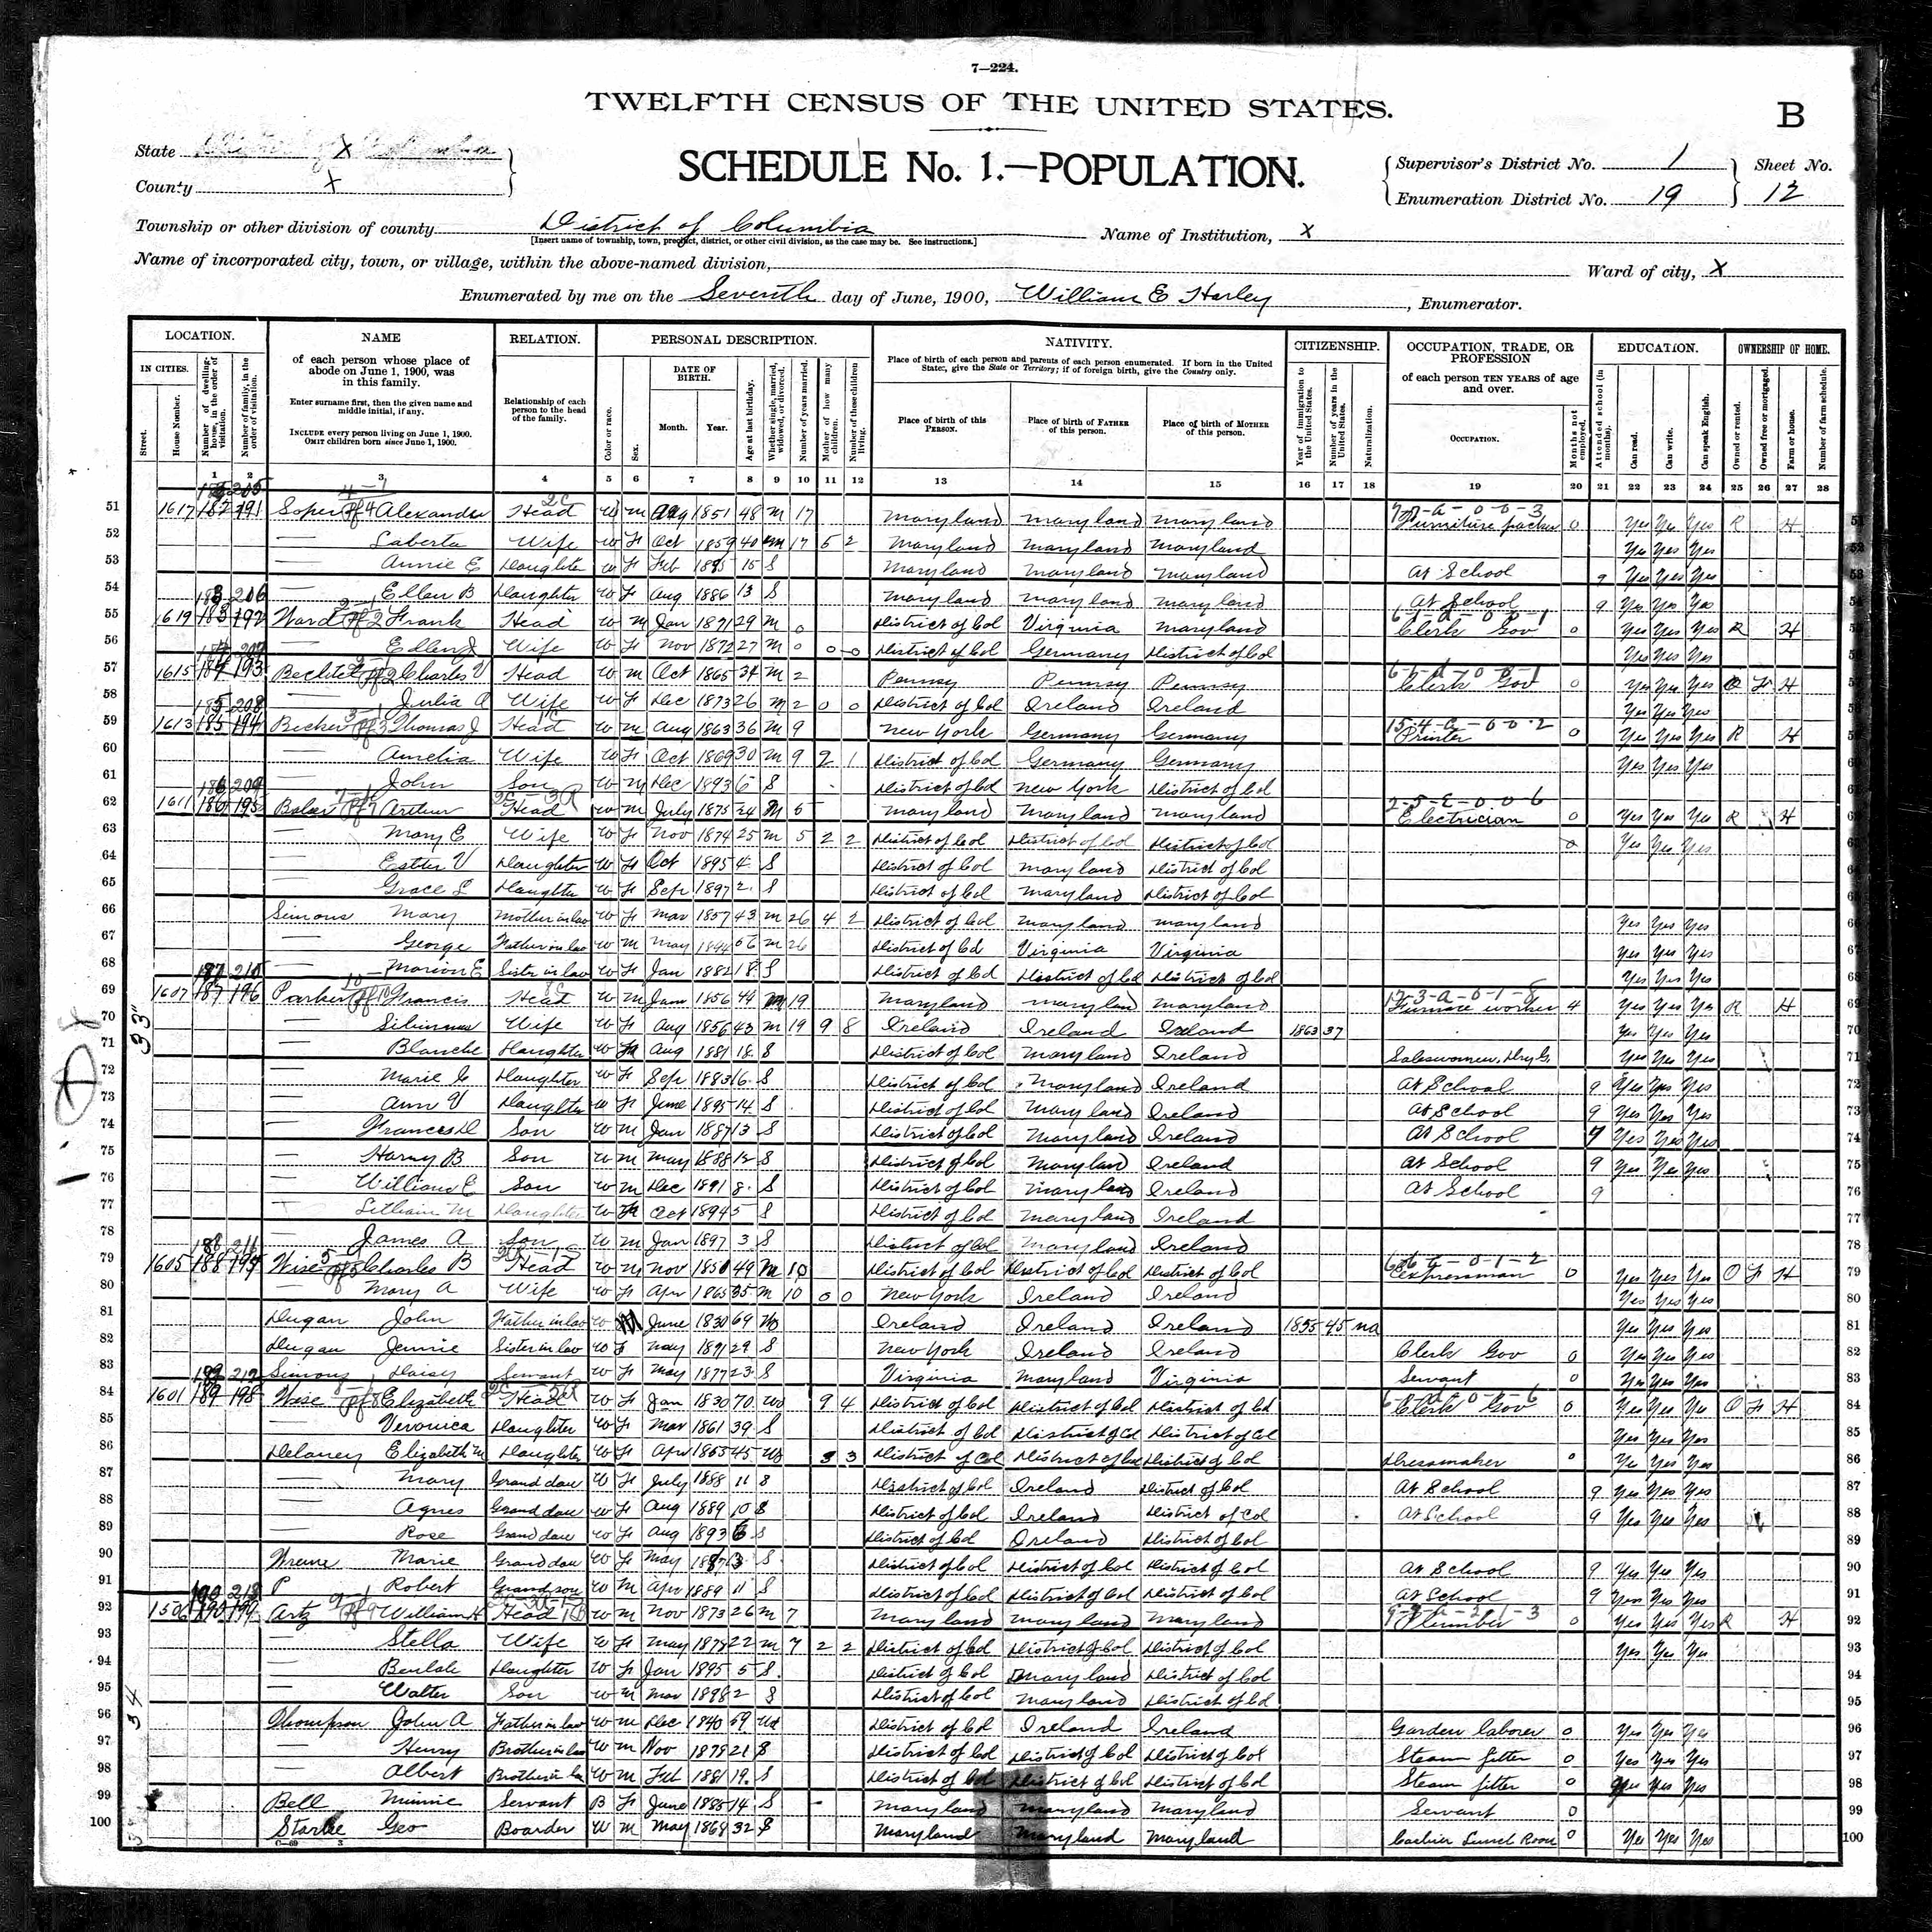 7—224.
TWELFTH CENSUS OF THE UNITED STATES.
B
State X
County X
SCHEDULE No. 1.—POPULATION.
Supervisor's District No. 1
Enumeration District No. 19
Sheet No. 12
Township or other division of county District of Columbia
[Insert name of township, town, precinct, district, or other civil division, as the case may be. See instructions.]
Name of Institution, X
Name of incorporated city, town, or village, within the above-named division,
Ward of city, X
Enumerated by me on the Seventh day of June, 1900, William E Harley, Enumerator.
LOCATION. NAME RELATION. PERSONAL DESCRIPTION. NATIVITY. CITIZENSHIP. OCCUPATION, TRADE, OR PROFESSION EDUCATION. OWNERSHIP OF HOME.
IN CITIES. Street. House Number. Number of dwelling-house, in the order of visitation. Number of family, in the order of visitation.
of each person whose place of abode on June 1, 1900, was in this family.
Enter surname first, then the given name and middle initial, if any.
INCLUDE every person living on June 1, 1900. OMIT children born since June 1, 1900.
Relationship of each person to the head of the family.
Color or race. Sex. DATE OF BIRTH. Month. Year. Age at last birthday. Whether single, married, widowed, or divorced. Number of years married. Mother of how many children. Number of these children living.
Place of birth of each person and parents of each person enumerated. If born in the United States, give the State or Territory; if of foreign birth, give the Country only.
Place of birth of this PERSON. Place of birth of FATHER of this person. Place of birth of MOTHER of this person.
Year of immigration to the United States. Number of years in the United States. Naturalization.
of each person TEN YEARS of age and over. OCCUPATION. Months not employed.
Attended school (in months). Can read. Can write. Can speak English.
Owned or rented. Owned free or mortgaged. Farm or house. Number of farm schedule.
1 2 3 4 5 6 7 8 9 10 11 12 13 14 15 16 17 18 19 20 21 22 23 24 25 26 27 28
51 1617 187 191 Soper Alexander Head W M Aug 1851 48 M 17 Maryland Maryland Maryland Furniture packer 0 Yes Yes Yes R H
52 — Laberta Wife W F Oct 1859 40 M 17 5 2 Maryland Maryland Maryland Yes Yes Yes
53 — Annie E Daughter W F Feb 15 S Maryland Maryland Maryland At School 9 Yes Yes Yes
54 — Ellen B Daughter W F Aug 1886 13 S Maryland Maryland Maryland At School 9 Yes Yes Yes
55 1619 183 192 Ward Frank Head W M Jan 1871 29 M 0 District of Col Virginia Maryland Clerk Gov 0 Yes Yes Yes R H
56 — Ellen J Wife W F Nov 1872 27 M 0 0 0 District of Col Germany District of Col Yes Yes Yes
57 1615 184 193 Charles V Head W M Oct 1865 34 M 2 Pennsy Pennsy Pennsy Clerk Gov 0 Yes Yes Yes O F H
58 — Julia A Wife W F Dec 1873 26 M 2 0 0 District of Col Ireland Ireland Yes Yes Yes
59 1613 185 194 Becker Thomas J Head W M Aug 1863 36 M 9 New York Germany Germany Printer 0 Yes Yes Yes R H
60 — Amelia Wife W F Oct 1869 30 M 9 2 1 District of Col Germany Germany Yes Yes Yes
61 — John Son W M Dec 1893 6 S District of Col New York District of Col
62 1611 186 195 Arthur Head W M July 1875 24 M 5 Maryland Maryland Maryland Electrician 0 Yes Yes Yes R H
63 — Mary E Wife W F Nov 1874 25 M 5 2 2 District of Col District of Col District of Col 0 Yes Yes Yes
64 — Esther V Daughter W F Oct 1895 4 S District of Col Maryland District of Col
65 — Grace L Daughter W F Sep 1897 2 S District of Col Maryland District of Col
66 Simons Mary Mother in law W F Mar 1857 43 M 26 4 2 District of Col Maryland Maryland Yes Yes Yes
67 — George Father in law W M May 56 M 26 District of Col Virginia Virginia Yes Yes Yes
68 — Marion E Sister in law W F Jan 1882 18 S District of Col District of Col District of Col Yes Yes Yes
69 1607 187 196 Parker Francis Head W M Jan 1856 44 M 19 Maryland Maryland Maryland Furnace worker 4 Yes Yes Yes R H
70 — Wife W F Aug 1856 43 M 19 9 8 Ireland Ireland Ireland 1863 37 Yes Yes Yes
71 — Blanche Daughter W F Aug 1881 18 S District of Col Maryland Ireland Saleswoman, Dry G. Yes Yes Yes
72 — Marie C Daughter W F Sep 1883 16 S District of Col Maryland Ireland At School 9 Yes Yes Yes
73 — Ann V Daughter W F June 14 S District of Col Maryland Ireland At School 9 Yes Yes Yes
74 — Francis D Son W M Jan 1887 13 S District of Col Maryland Ireland At School 9 Yes Yes Yes
75 — Harry B Son W M May 1888 12 S District of Col Maryland Ireland At School 9 Yes Yes Yes
76 — William E Son W M Dec 1891 8 S District of Col Maryland Ireland At School 9
77 — Lillian M Daughter W F Oct 1894 5 S District of Col Maryland Ireland
78 — James A Son W M Jan 1897 3 S District of Col Maryland Ireland
79 1605 188 197 Wise Charles B Head W M Nov 1850 49 M 10 District of Col District of Col District of Col Expressman 0 Yes Yes Yes O F H
80 — Mary A Wife W F Apr 1865 35 M 10 0 0 New York Ireland Ireland Yes Yes Yes
81 Dugan John Father in law W M June 1830 69 Wd Ireland Ireland Ireland 1855 45 na Yes Yes Yes
82 Dugan Jennie Sister in law W F May 1871 29 S New York Ireland Ireland Clerk Gov 0 Yes Yes Yes
83 Simons Daisy Servant W F May 1877 23 S Virginia Maryland Virginia Servant 0 Yes Yes Yes
84 1601 189 198 Wise Elizabeth Head W F Jan 1830 70 Wd 9 4 District of Col District of Col District of Col Clerk Gov 0 Yes Yes Yes O F H
85 — Veronica Daughter W F Mar 1861 39 S District of Col District of Col District of Col Yes Yes Yes
86 Delaney Elizabeth M Daughter W F Apr 1855 45 Wd 3 3 District of Col District of Col District of Col Dressmaker 0 Yes Yes Yes
87 — Mary Grand dau W F July 1888 11 S District of Col Ireland District of Col At School 9 Yes Yes Yes
88 — Agnes Grand dau W F Aug 1889 10 S District of Col Ireland District of Col At School 9 Yes Yes Yes
89 — Rose Grand dau W F Aug 1893 6 S District of Col Ireland District of Col
90 Marie Grand dau W F May 1887 13 S District of Col District of Col District of Col At School 9 Yes Yes Yes
91 Robert Grandson W M Apr 1889 11 S District of Col District of Col District of Col At School 9 Yes Yes Yes
92 1506 190 199 Artz William H Head W M Nov 1873 26 M 7 Maryland Maryland Maryland Plumber 0 Yes Yes Yes R H
93 — Stella Wife W F May 1878 22 M 7 2 2 District of Col District of Col District of Col Yes Yes Yes
94 — Beulah Daughter W F Jan 1895 5 S District of Col Maryland District of Col
95 — Walter Son W M Mar 1898 2 S District of Col Maryland District of Col
96 Thompson John A Father in law W M Dec 1840 59 Wd District of Col Ireland Ireland Garden laborer 0 Yes Yes Yes
97 — Henry Brother in law W M Nov 1878 21 S District of Col District of Col District of Col Steam fitter 0 Yes Yes Yes
98 — Albert Brother in law W M Feb 1881 19 S District of Col District of Col District of Col Steam fitter 0 Yes Yes Yes
99 Bell Minnie Servant B F June 1885 14 S Maryland Maryland Maryland Servant 0
100 Geo Boarder W M May 1868 32 S Maryland Maryland Maryland Cashier Lunch Room 0 Yes Yes Yes